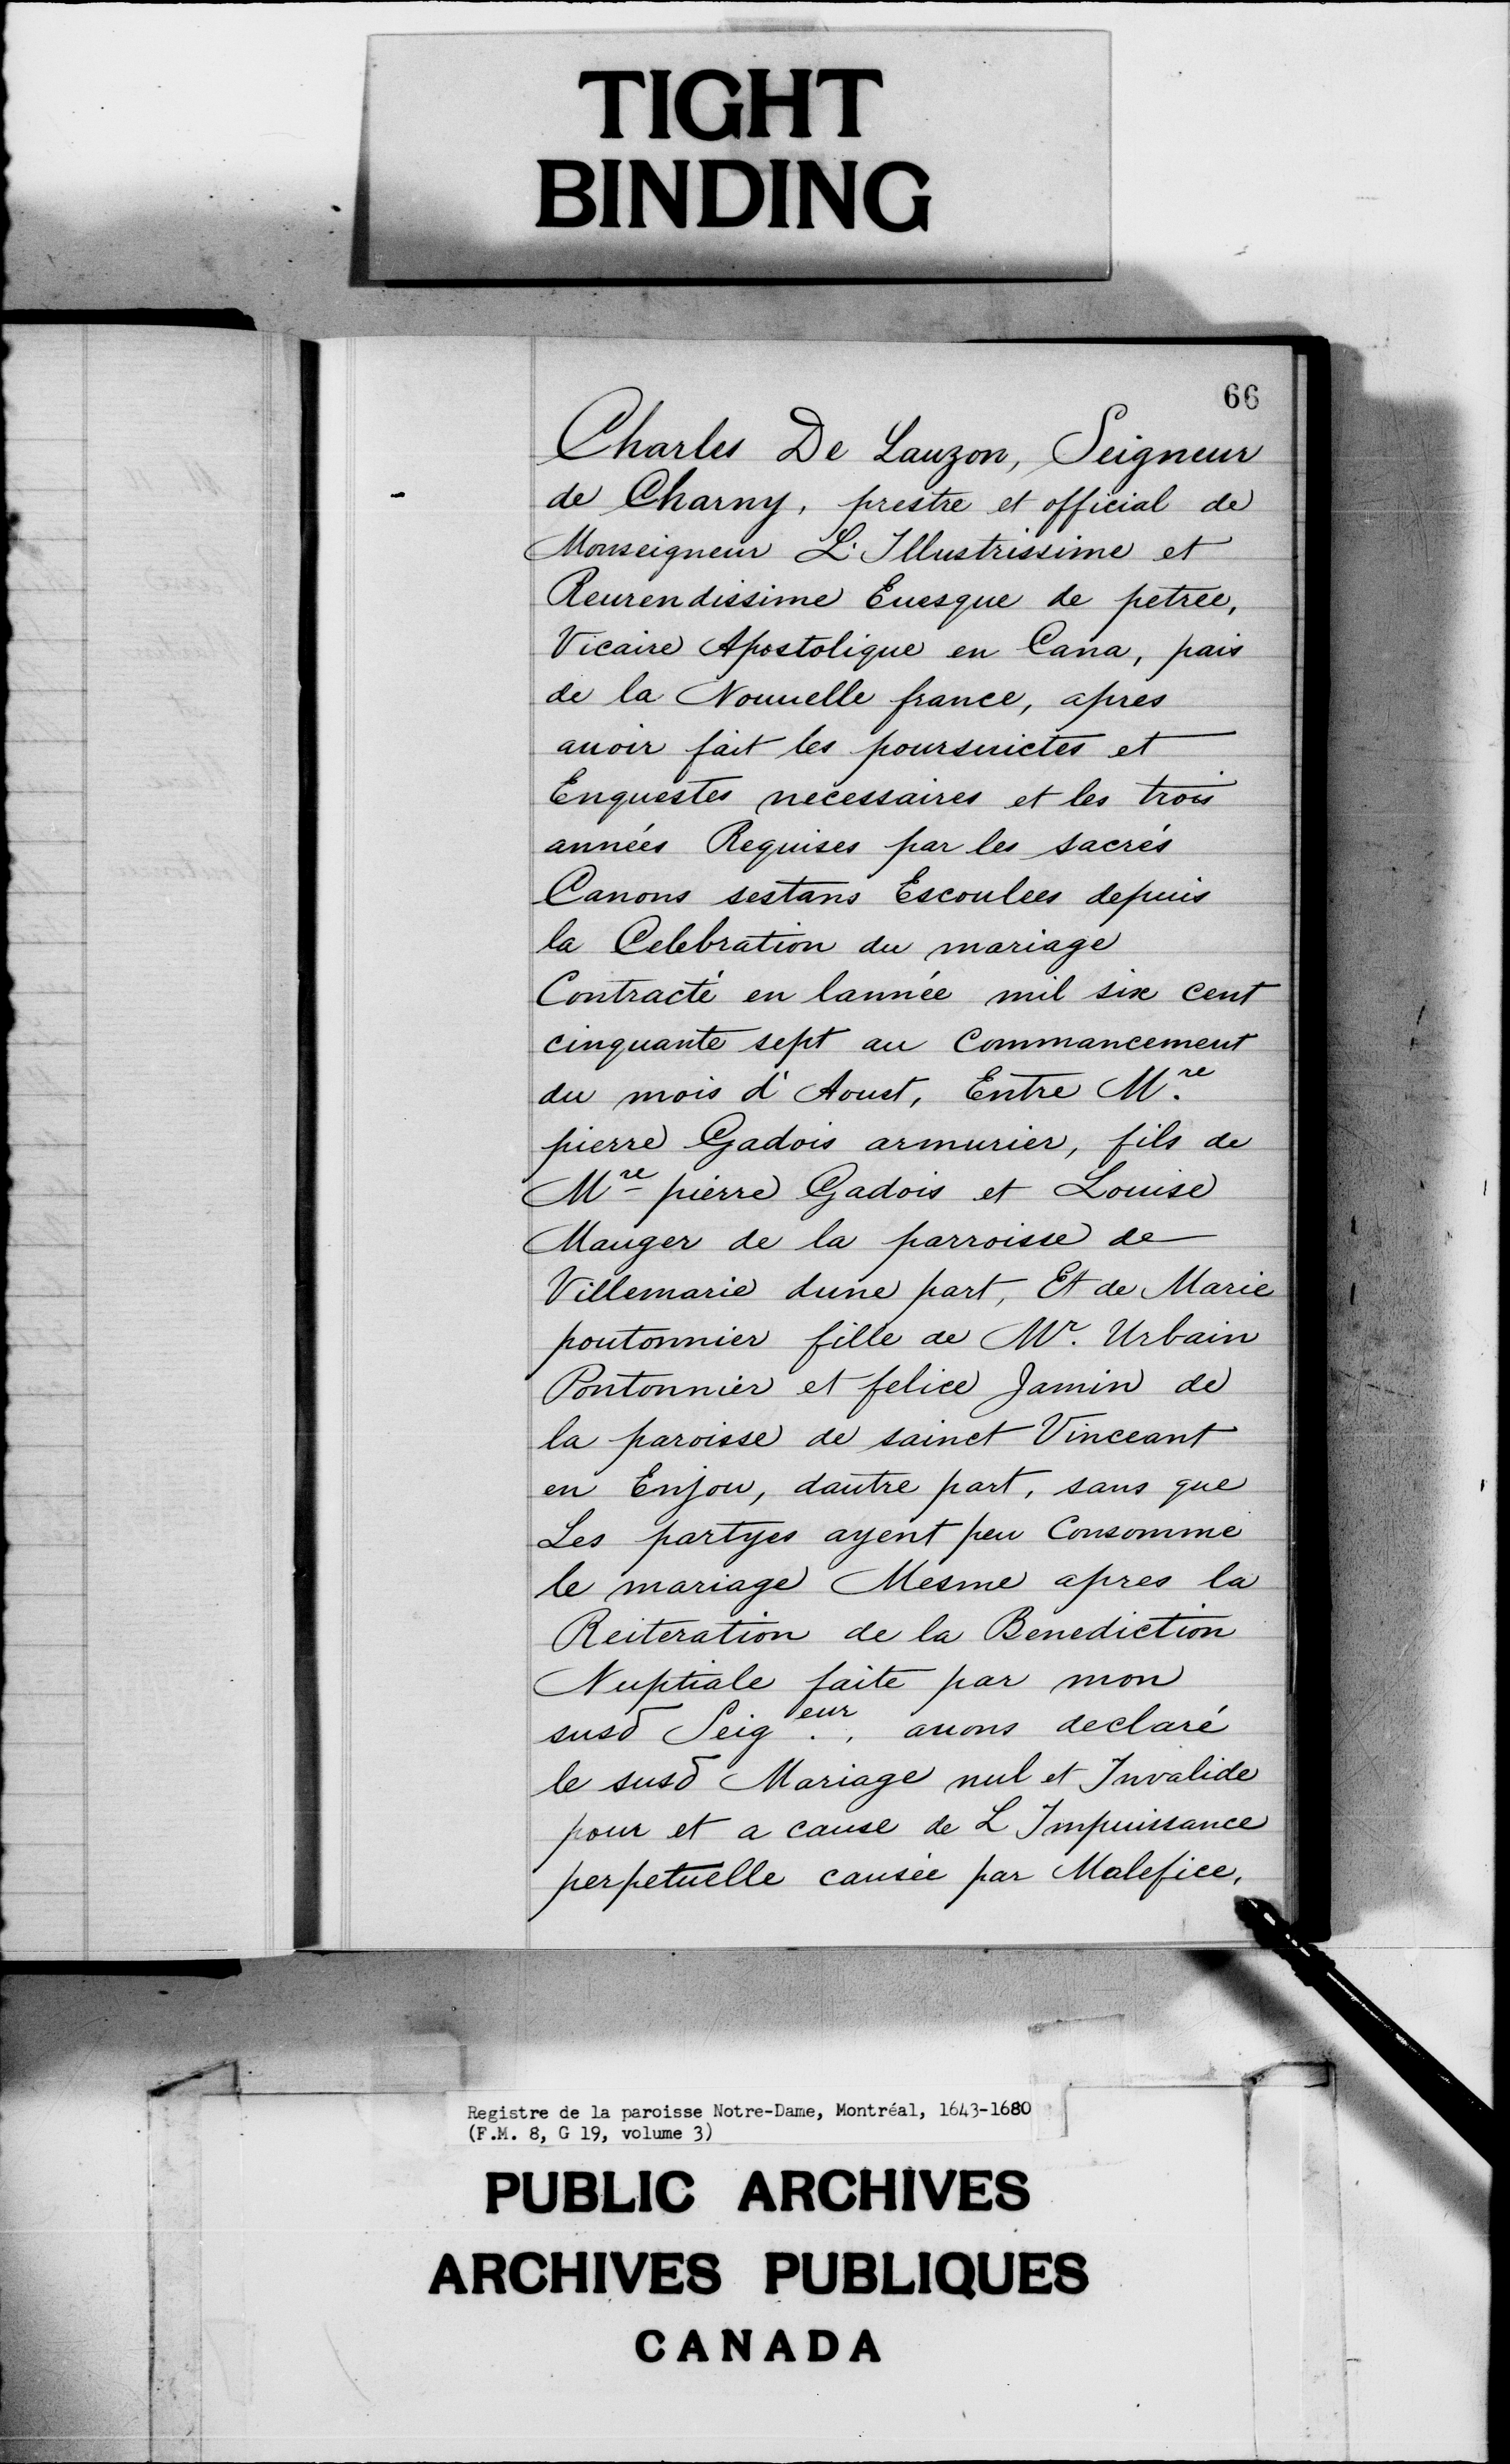 TIGHT
BINDING
66
Charles De Lauzon, Seigneur
de Charny, prestre et official de
Monseigneur L'Illustrissime et
Reurendissime Euesque de petree,
Vicaire Apostolique en Cana, pais
de la Nouuelle france, apres
auoir fait les poursuictes et
Enquestes necessaires et les trois
années Requises par les sacrés
Canons sestans Escoulees depuis
la Celebration du mariage
Contracté en lannée mil six cent
cinquante sept au Commancement
du mois d'Aoust, Entre Mre
pierre Gadois armurier, fils de
Mre pierre Gadois et Louise
Mauger de la parroisse de
Villemarie dune part, Et de Marie
pontonnier fille de Mr. Urbain
Pontonnier et felice Jamin de
la paroisse de sainct Vinceant
en Enjou, dautre part, sans que
Les partyes ayent peu Consommé
le mariage Mesme apres la
Reiteration de la Benediction
Nuptiale faite par mon
susd Seigeur., auons declaré
le susd Mariage nul et Invalide
pour et a cause de L Impuissance
perpetuelle causée par Malefice,
Registre de la paroisse Notre-Dame, Montréal, 1643-1680
(F.M. 8, G 19, volume 3)
PUBLIC ARCHIVES
ARCHIVES PUBLIQUES
CANADA